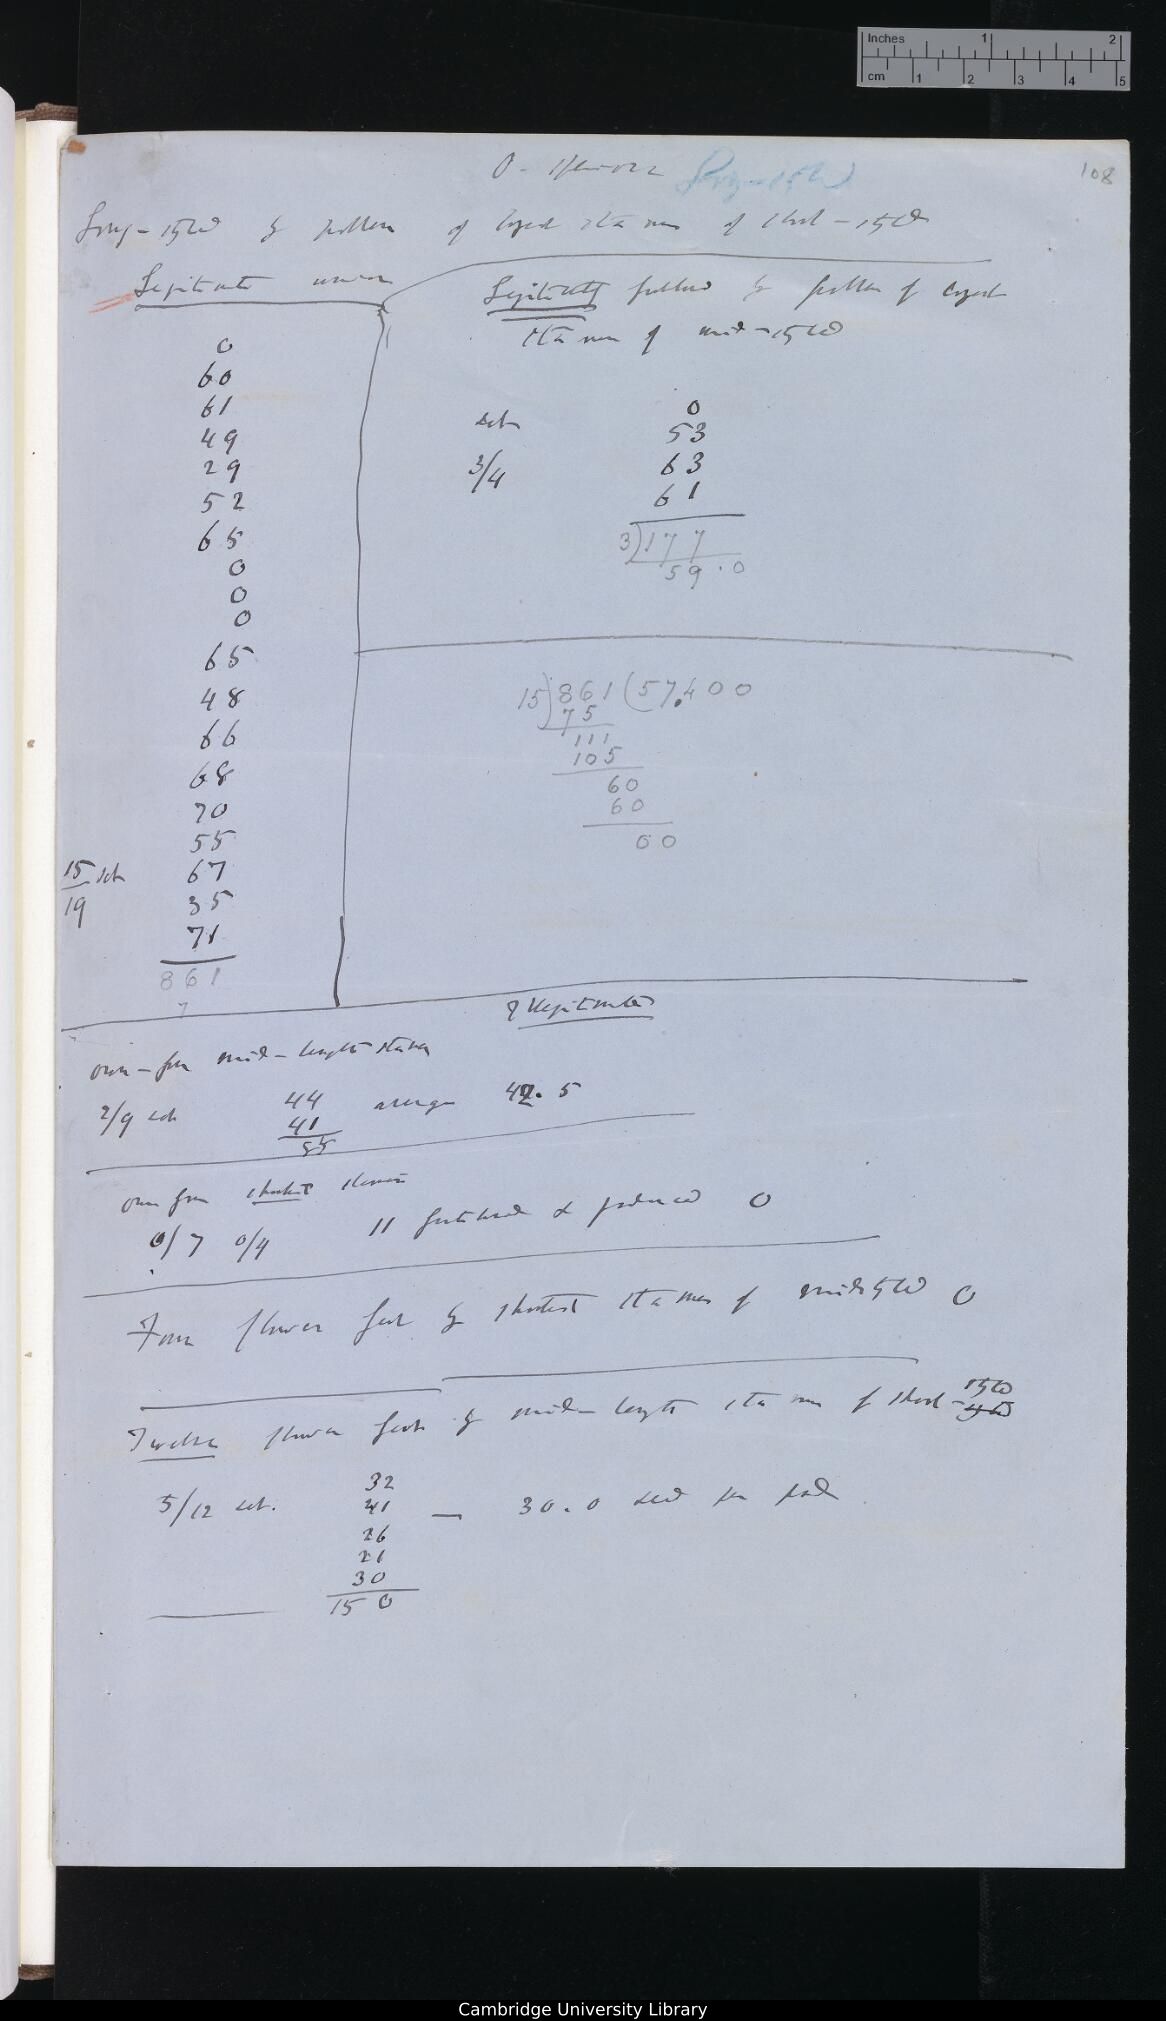 Inches 1 2
cm 1 2 3 4 5
108
O. speciosa Long-styled
Long-styled by pollen of longest stamens of short-styled
Legitimate union
0
60
61
49
29
52
65
0
0
0
65
48
66
68
70
55
15/19 set 67
35
71
861
7
Legitimately fertilised by pollen of longest
stamens of mid-styled
set 0
53
3/4 63
61
3)177
59.0
15)861(57.400
75
111
105
60
60
00
Illegitimate
own-form mid-length stamens
2/9 set 44 average 42.5
41
85
own form shortest stamens
0/7 0/4 11 fertilised & produced 0
Four flowers fert by shortest stamens of mid-styled 0
Twelve flowers fert by mid-length stamens of short-styled
5/12 set. 32
41 — 30.0 seed per pod
26
21
30
150
Cambridge University Library